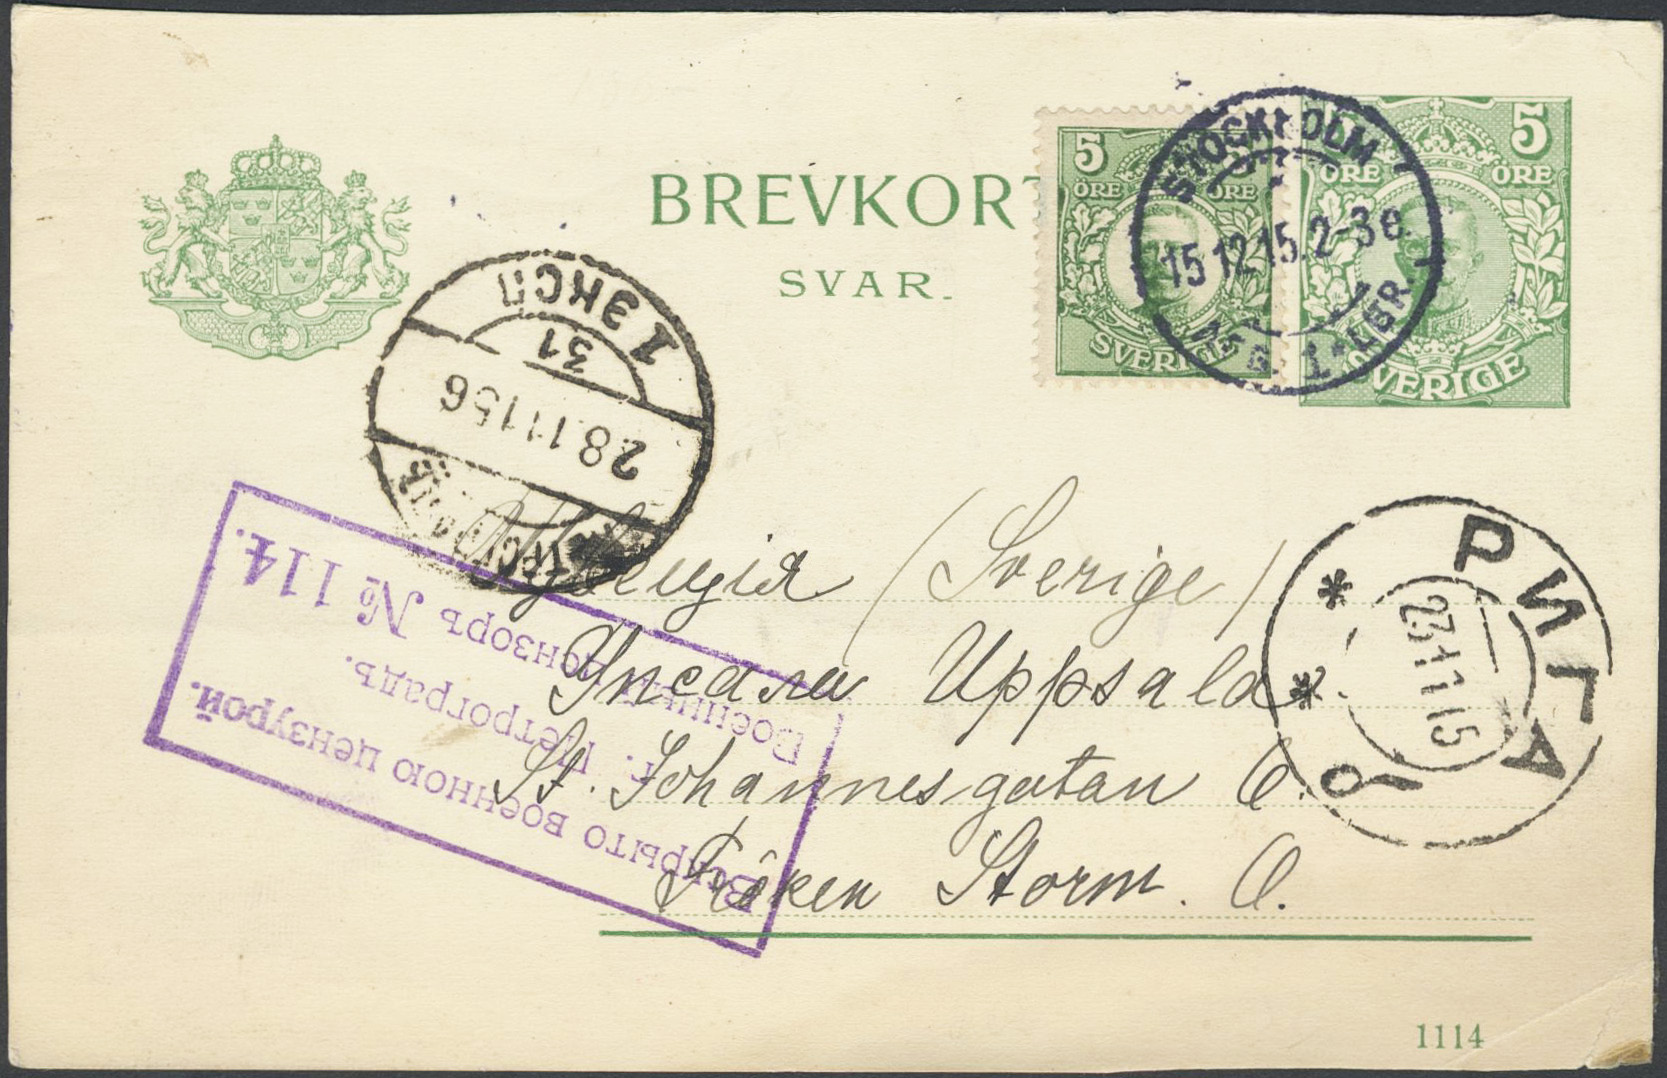 BREVKORT
SVAR.
5 5
ÖRE ÖRE
SVERIGE
5
ÖRE ÖRE
SVERIGE
STOCKHOLM 1
15 12 15. 2-3 e.
1 ЭКСП
31
28.11.15 6
Вскрыто военною цензурой.
г. Петроградъ.
Военный цензоръ № 114.
РИГА
23 11 15
Швеція (Sverige)
Упсала Uppsala
St. Johannesgatan
Fröken Storm. O.
1114